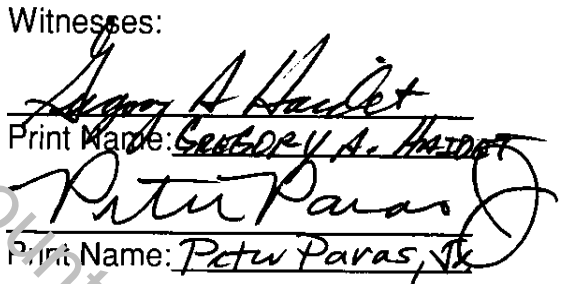 Witnesses:
Gregory A Haidet
Print Name: GREGORY A. HAIDET
Peter Paras J
Print Name: Peter Paras, Jr
ount